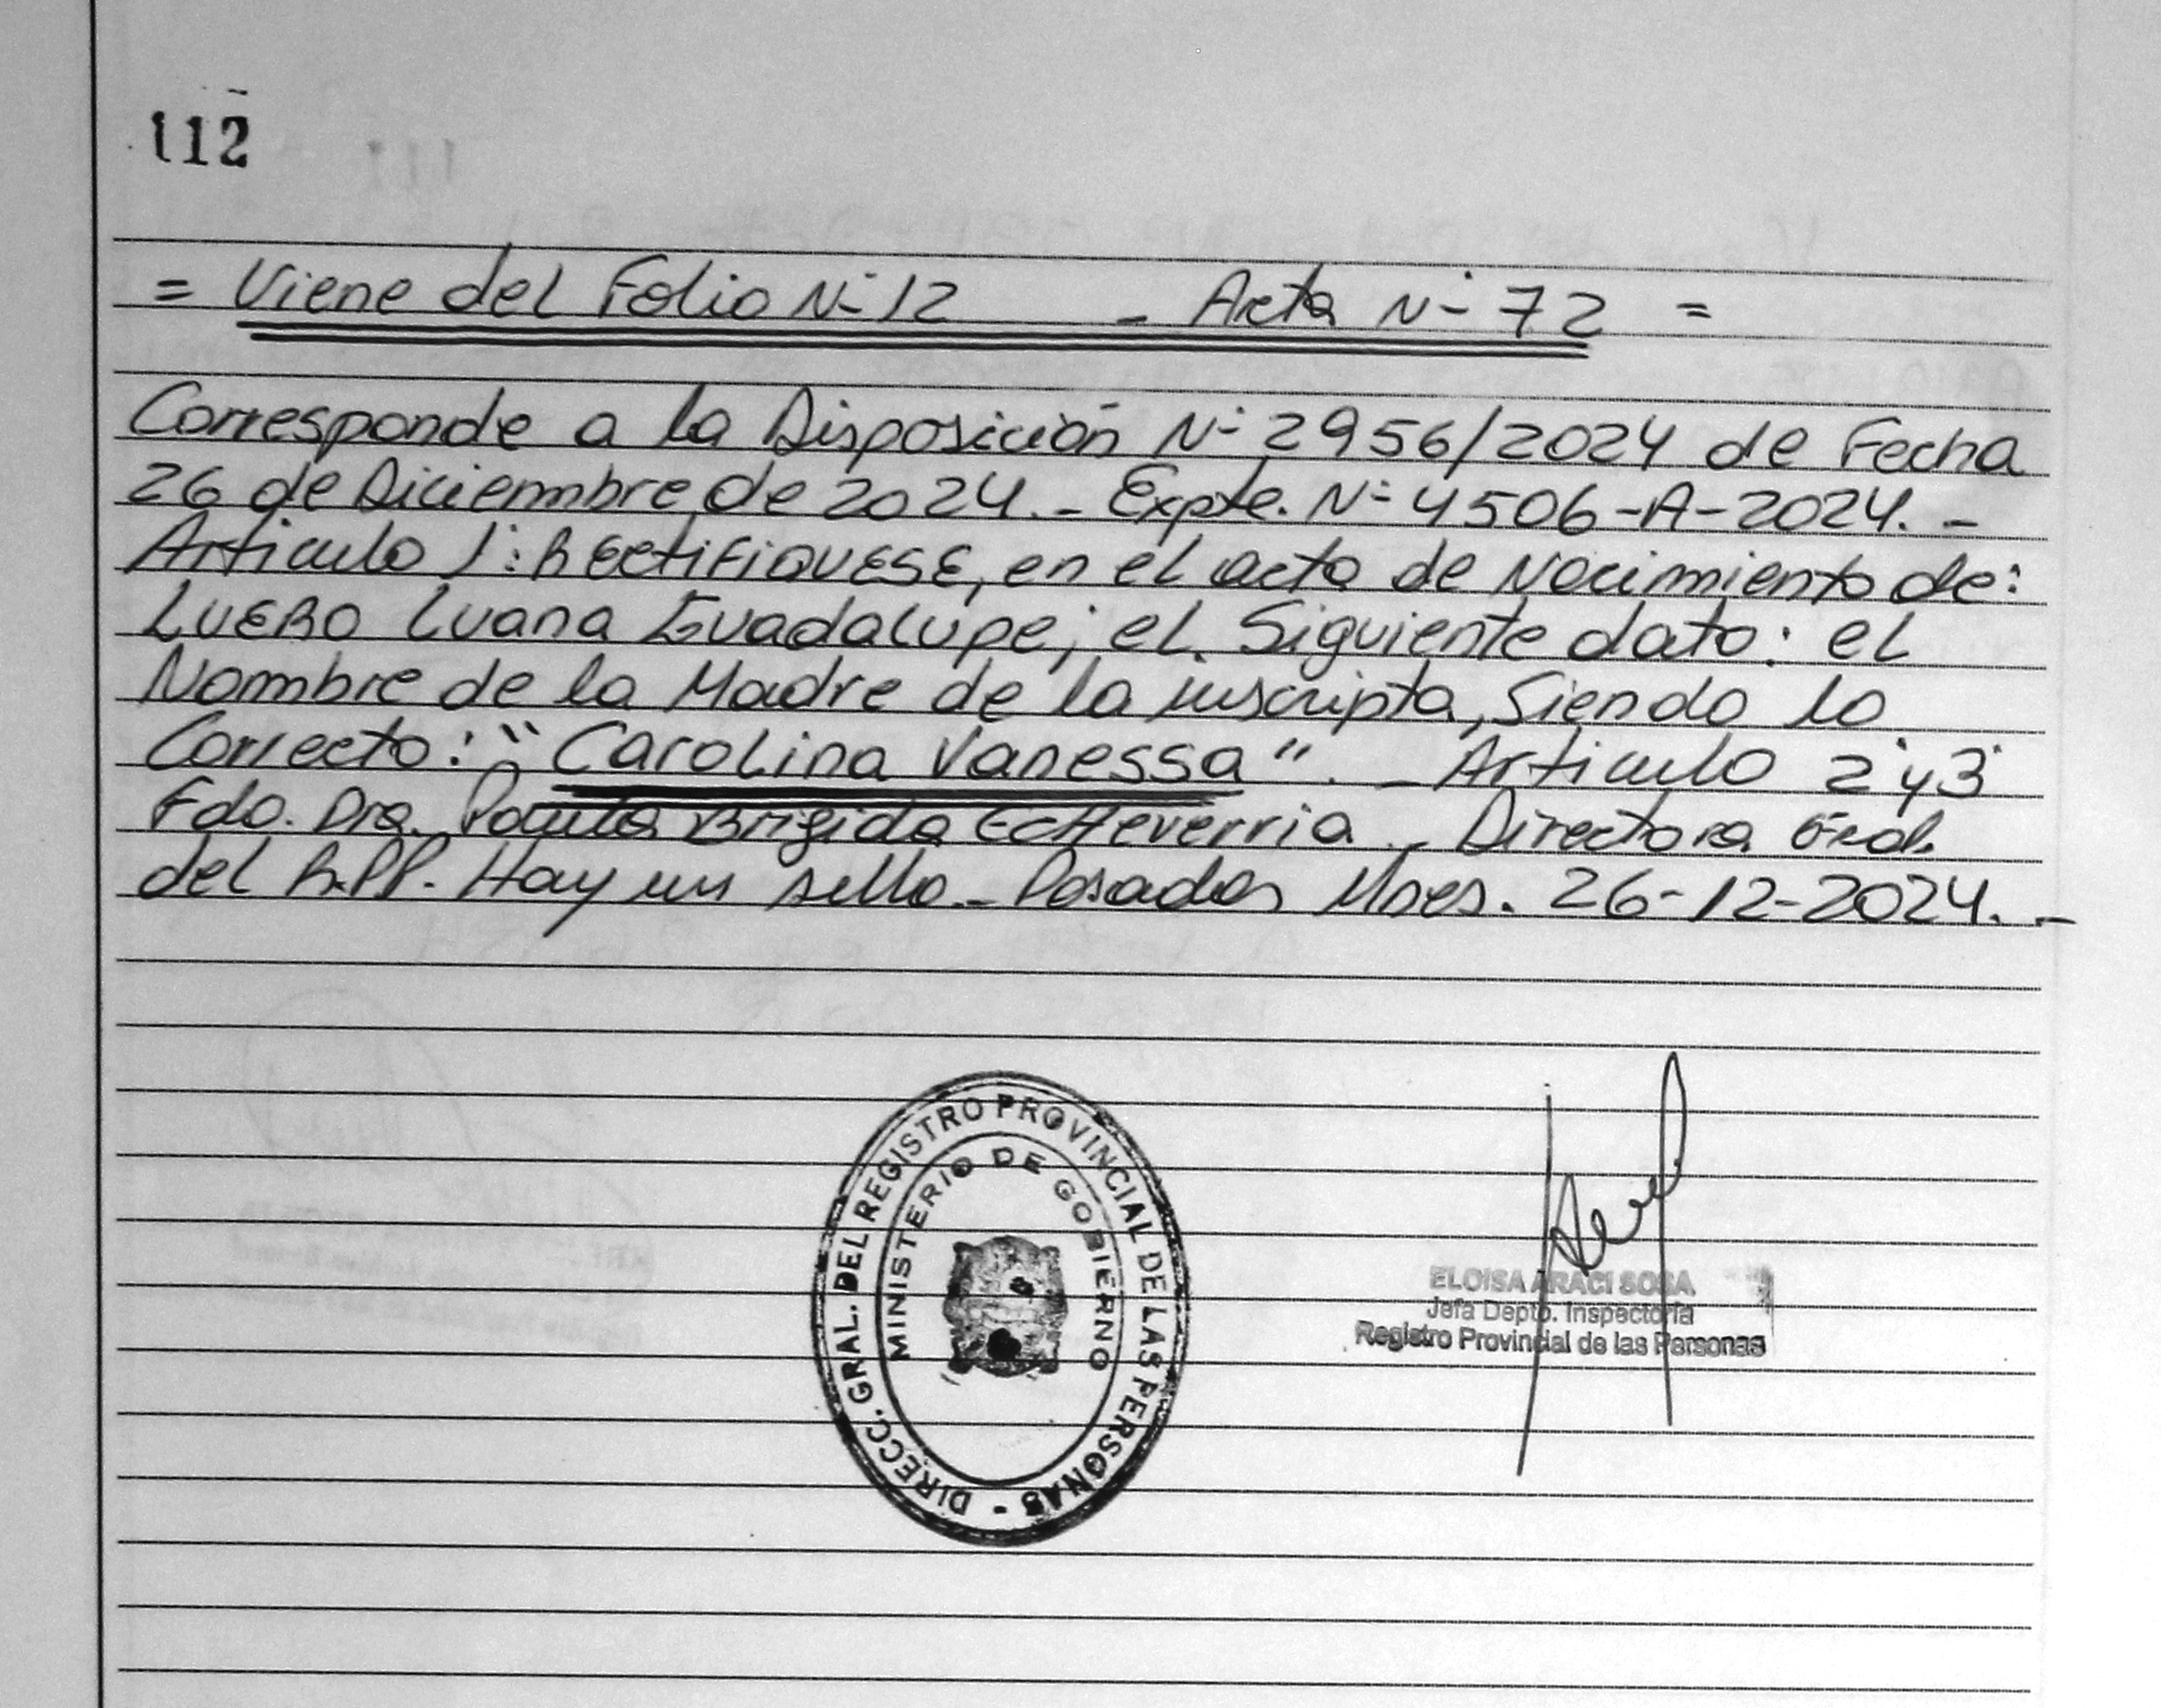 112
= Viene del Folio N- 12 - Acta N- 72 =
Corresponde a la Disposición N- 2956/2024 de Fecha
26 de Diciembre de 2024. - Expte. N- 4506-A-2024. -
Articulo 1°: RECTIFIQUESE, en el acta de Nacimiento de:
LUERO Luana Guadalupe; el Siguiente dato: el
Nombre de la Madre de la inscripta, Siendo lo
Correcto: "Carolina Vanessa". - Articulo 2° y 3°
Fdo. Dra. Paula Brigida Echeverria - Directora Gral.
del R.PP. Hay un sello. - Posadas Mnes. 26-12-2024. -
DIRECC. GRAL. DEL REGISTRO PROVINCIAL DE LAS PERSONAS -
MINISTERIO DE GOBIERNO
ELOISA ARACI SOSA
Jefa Depto. Inspectoria
Registro Provincial de las Personas